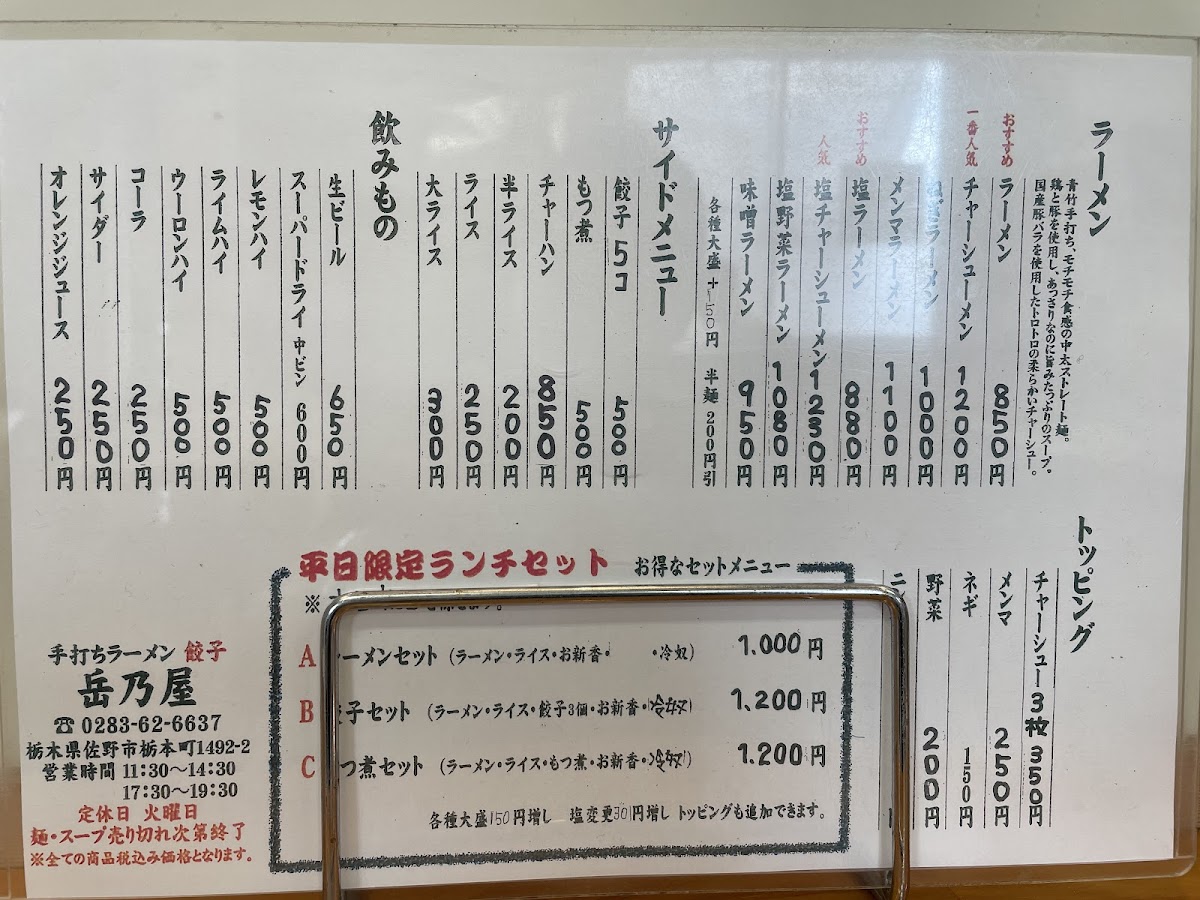 ラーメン
青竹手打ち、モチモチ食感の中太ストレート麺。
鶏と豚を使用し、あっさりなのに旨みたっぷりのスープ。
国産豚バラを使用したトロトロの柔らかいチャーシュー。
おすすめ
ラーメン 850円
一番人気
チャーシューメン 1200円
ねぎラーメン 1000円
メンマラーメン 1100円
おすすめ
塩ラーメン 880円
人気
塩チャーシューメン 1230円
塩野菜ラーメン 1080円
味噌ラーメン 950円
各種大盛+150円 半麺200円引
サイドメニュー
餃子5コ 500円
もつ煮 500円
チャーハン 850円
半ライス 200円
ライス 250円
大ライス 300円
飲みもの
生ビール 650円
スーパードライ 中ビン 600円
レモンハイ 500円
ライムハイ 500円
ウーロンハイ 500円
コーラ 250円
サイダー 250円
オレンジジュース 250円
トッピング
チャーシュー3枚 350円
メンマ 250円
ネギ 150円
野菜 200円
平日限定ランチセット お得なセットメニュー
※
A ラーメンセット (ラーメン・ライス・お新香・ ・冷奴) 1.000円
B 餃子セット (ラーメン・ライス・餃子3個・お新香・冷奴) 1.200円
C もつ煮セット (ラーメン・ライス・もつ煮・お新香・冷奴) 1.200円
各種大盛150円増し 塩変更30円増し トッピングも追加できます。
手打ちラーメン 餃子
岳乃屋
☎0283-62-6637
栃木県佐野市栃本町1492-2
営業時間 11:30〜14:30
17:30〜19:30
定休日 火曜日
麺・スープ売り切れ次第終了
※全ての商品税込み価格となります。